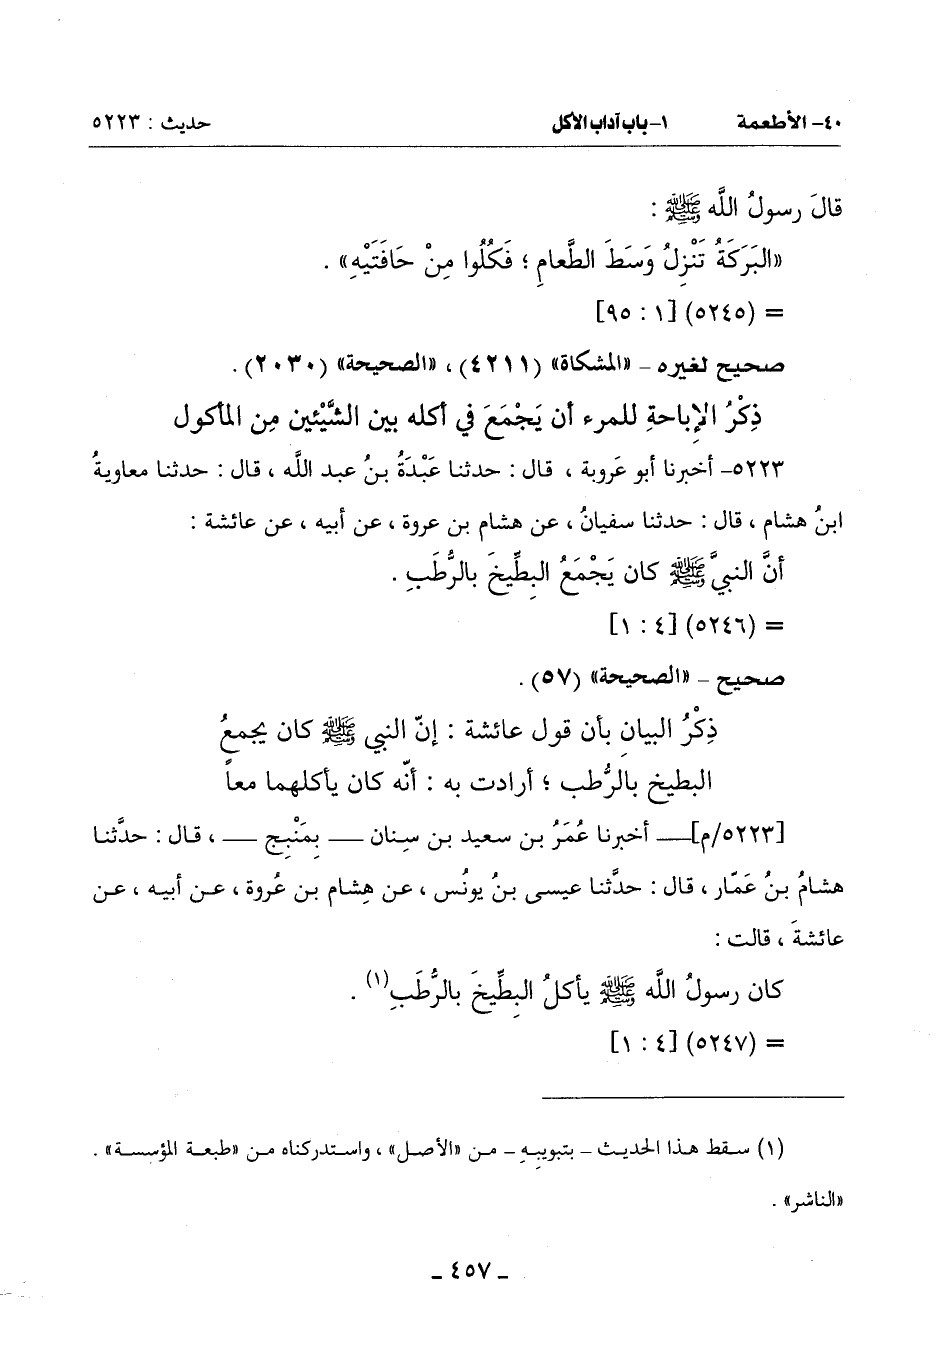 ٤٠- الأطعمة ١- باب آداب الأكل حديث : ٥٢٢٣
قالَ رسولُ اللَّه ﷺ :
«البَرَكَةُ تَنْزِلُ وَسَطَ الطَّعامِ ؛ فَكُلُوا مِنْ حَافَتَيْهِ» .
= (٥٢٤٥) [١ : ٩٥]
صحيح لغيره – «المشكاة» (٤٢١١) ، «الصحيحة» (٢٠٣٠) .
ذِكْرُ الإباحةِ للمرء أن يَجْمَعَ في أكله بين الشَّيْئين مِن المأكول
٥٢٢٣- أخبرنا أبو عَروبة ، قال : حدثنا عَبْدَةُ بنُ عبد اللَّه ، قال : حدثنا معاويةُ
ابنُ هشام ، قال : حدثنا سفيانُ ، عن هشام بن عروة ، عن أبيه ، عن عائشة :
أنَّ النبيَّ ﷺ كان يَجْمَعُ البِطِّيخَ بالرُّطَبِ .
= (٥٢٤٦) [٤ : ١]
صحيح – «الصحيحة» (٥٧) .
ذِكْرُ البيانِ بأن قول عائشة : إنّ النبي ﷺ كان يجمعُ
البطيخ بالرُّطب ؛ أرادت به : أنّه كان يأكلهما معاً
[٥٢٢٣/م]ــــ أخبرنا عُمَرُ بن سعيد بن سِنان ــــ بِمَنْبِجِ ــــ ، قال : حدَّثنا
هشامُ بنُ عَمّار ، قال : حدَّثنا عيسى بنُ يونُس ، عن هِشام بن عُروة ، عن أبيه ، عن
عائشةَ ، قالت :
كان رسولُ اللَّه ﷺ يأكلُ البِطِّيخَ بالرُّطَبِ(١) .
= (٥٢٤٧) [٤ : ١]
(١) سقط هذا الحديث – بتبويبِهِ – من «الأصل» ، واستدركناه من «طبعة المؤسسة» .
«الناشر» .
– ٤٥٧ –